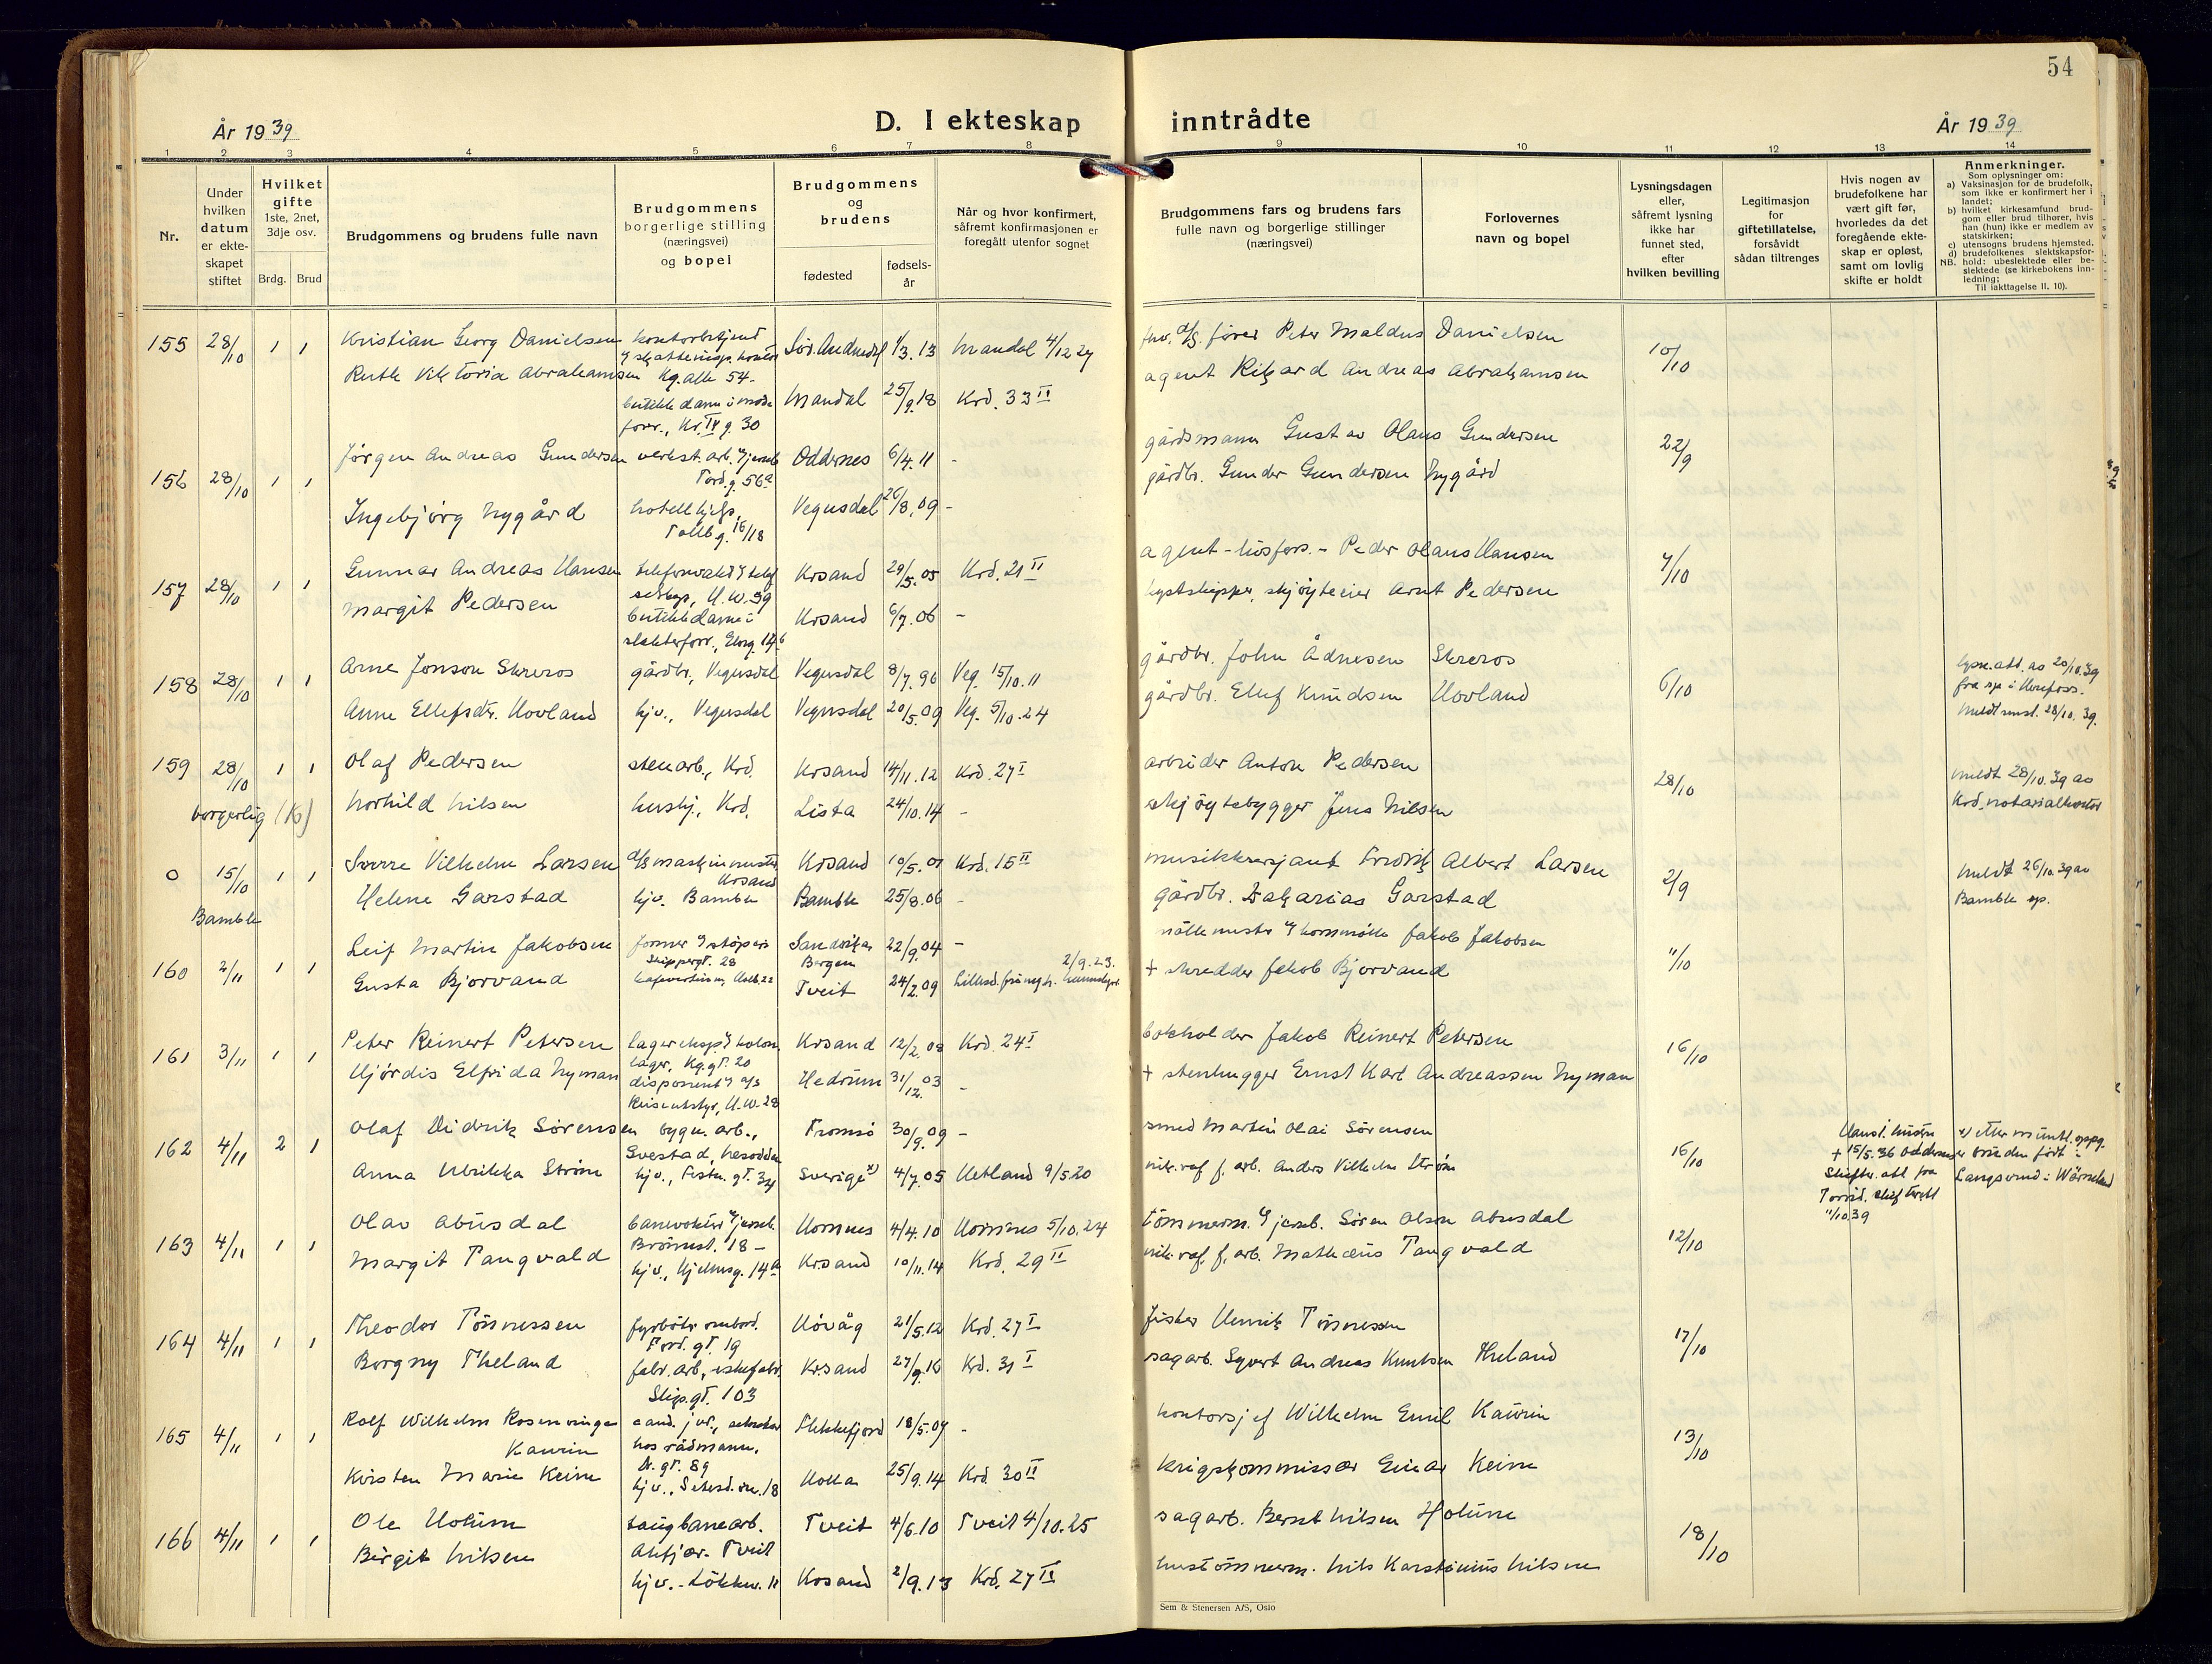 54
År 1939
D. I ekteskap inntrådte
År 1939
1 2 3 4 5 6 7 8 9 10 11 12 13 14
Nr.
Under hvilken datum er ekteskapet stiftet
Hvilket gifte 1ste, 2net, 3dje osv.
Brdg. Brud
Brudgommens og brudens fulle navn
Brudgommens borgerlige stilling (næringsvei) og bopel
Brudgommens og brudens
fødested
fødselsår
Når og hvor konfirmert, såfremt konfirmasjonen er foregått utenfor sognet
Brudgommens fars og brudens fars fulle navn og borgerlige stillinger (næringsvei)
Forlovernes navn og bopel
Lysningsdagen eller, såfremt lysning ikke har funnet sted, efter hvilken bevilling
Legitimasjon for giftetillatelse, forsåvidt sådan tiltrenges
Hvis nogen av brudefolkene har vært gift før, hvorledes da det foregående ekteskap er opløst, samt om lovlig skifte er holdt
Anmerkninger.
Som oplysninger om:
a) Vaksinasjon for de brudefolk, som ikke er konfirmert her i landet;
b) hvilket kirkesamfund brudgom eller brud tilhører, hvis han (hun) ikke er medlem av statskirken;
c) utensogns brudens hjemsted.
d) brudefolkenes slektskapsforhold: ubeslektede eller beslektede (se kirkebokens innledning;
NB. Til iakttagelse II. 10).
155 28/10 1 1 Kristian Georg Danielsen Kg. alle 54. Sør. Audnedal 1/3.13 Mandal 4/12 27 Peter Maldus Danielsen 10/10
Ruth Viktoria Abrahamsen Mandal 25/9.18 Krd. 33 II agent Rikard Andreas Abrahamsen
156 28/10 1 1 Jørgen Andreas Gundersen Tord.g. 56a Oddernes 6/4.11 - gårdsmann Gustav Olaus Gundersen 22/9
Ingebjørg Nygård hotellhjelp, Tollb.g. 16/18 Vegusdal 26/8.09 - gårdbr. Gunder Gundersen Nygård
157 28/10 1 1 Gunnar Andreas Hansen Krsand 29/5.05 Krd. 21 II Peder Olaus Hansen 7/10
Margit Pedersen butikkdame i Krsand 6/7.06 - Arnt Pedersen
158 28/10 1 1 Arne Jonson Skreros gårdbr., Vegusdal Vegusdal 8/7.96 Veg. 15/10.11 gårdbr. John Ådnesen Skreros 6/10 lysn.att. av 20/10.39
Anne Ellefsdtr. Hovland hjv., Vegusdal Vegusdal 20/5.09 Veg. 5/10.24 gårdbr. Ellef Knudsen Hovland 28/10.39.
159 28/10 1 1 Olaf Pedersen stenarb., Krd. Krsand 14/11.12 Krd. 27 I arbeider Anton Pedersen 28/10 meldt 28/10.39 av
borgerlig (K) Norhild Nilsen hushj., Krd. Lista 24/10.14 - skjøytebygger Jens Nilsen Krd. notarialkontor
0 15/10 1 1 Sverre Vilhelm Larsen Krsand Krsand 10/5.01 Krd. 15 II Fredrik Albert Larsen 2/9 meldt 26/10.39 av
Bamble Helene Garstad hjv. Bamble Bamble 25/8.06 - gårdbr. Zakarias Garstad Bamble sp.
160 2/11 1 1 Leif Martin Jakobsen Skippergt. 28 Sandviken Bergen 22/9.04 - Jakob Jakobsen 11/10
Gusta Bjorvand Tveit 24/2.09 2/9.23. + skredder Jakob Bjorvand
161 3/11 1 1 Peter Reinert Petersen lager, Kg.gt. 20 Krsand 12/2.08 Krd. 24 I bokholder Jakob Reinert Petersen 16/10
Hjördis Elfrida Nyman Hedrum 31/12.03 - + stenhugger Ernst Karl Andreassen Nyman
162 4/11 2 1 Olaf Didrik Sørensen bygn. arb., Svestad, Nesodden Tromsø 30/9.09 - smed Martin Olai Sörensen 16/10
Anna Ulrikka Ström hjv., Festn.gt. 34 Sverige x) 4/7.05 Hetland 9/5 20 Anders Vilhelm Ström
+ 15/5.36 Oddernes
11/10 39
163 4/11 1 1 Olav Abusdal Hornnes 4/4.10 Hornnes 5/10.24 Sören Olsen Abusdal 12/10
Margit Tangvald Krsand 10/11.14 Krd. 29 II Matheus Tangvald
164 4/11 1 1 Theodor Tönnessen Tord.gt. 19 Hövåg 21/5.12 Krd. 27 I fisker Henrik Tönnessen 17/10
Borgny Theland Skip.gt. 103 Krsand 27/9.16 Krd. 31 I sagarb. Syvert Andreas Knutsen Theland
165 4/11 1 1 Rolf Wilhelm Rosenvinge Kaurin cand. jur., sekretær hos rådmann, D.gt. 89 Flekkefjord 18/5.07 - kontorsjef Wilhelm Emil Kaurin 13/10
Kirsten Marie Keim hjv., Setesd.vn. 18 Holla 25/9.14 Krd. 30 II krigskommissær Einar Keim
166 4/11 1 1 Ole Holum taugbanearb. Ålefjær. Tveit Tveit 4/6.10 Tveit 4/10.25 sagarb. Bernt Nilsen Holum 18/10
Birgit Nilsen hjv. Krsand 2/9.13 Krd. 27 II hustömmerm. Nils Karstinius Nilsen
Sem & Stenersen A/S, Oslo